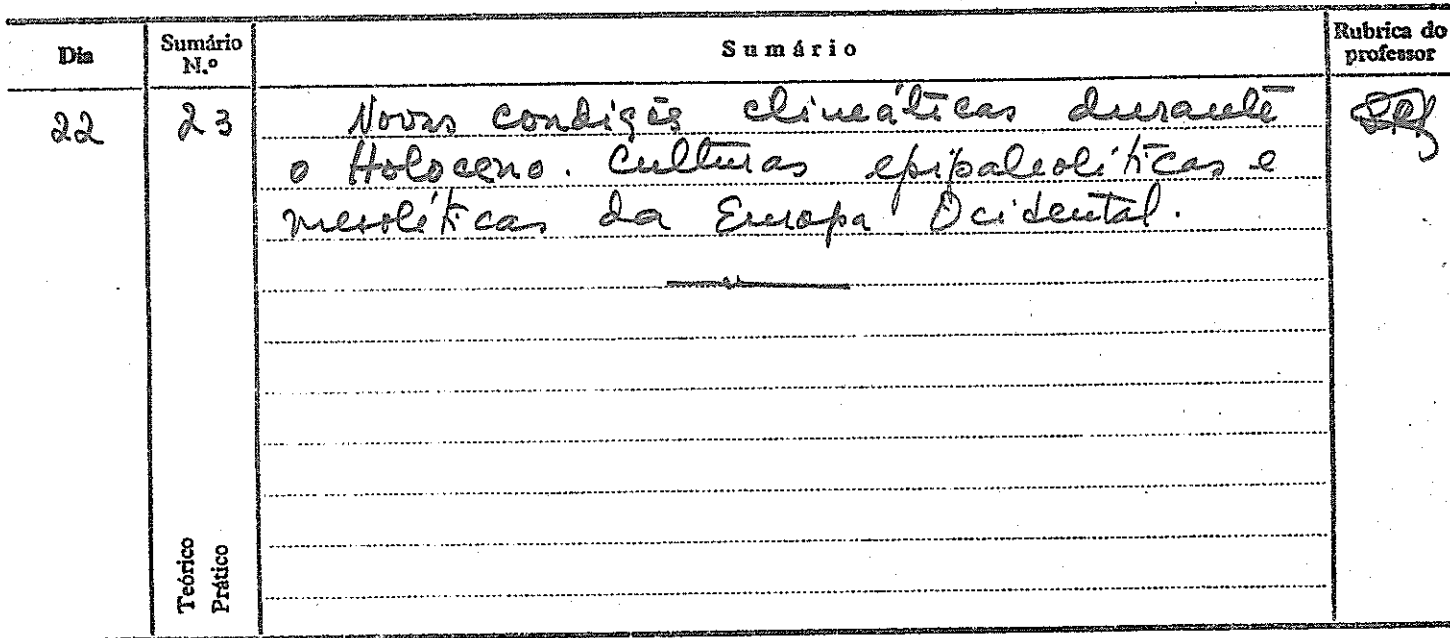 Dia Sumário N.º Sumário Rubrica do professor
22 23 Novas condições climáticas durante
o Holoceno. Culturas epipaleolíticas e
mesolíticas da Europa Ocidental.
Teórico
Prático